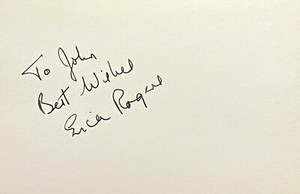 To John
Best Wishes
Erica Rogers